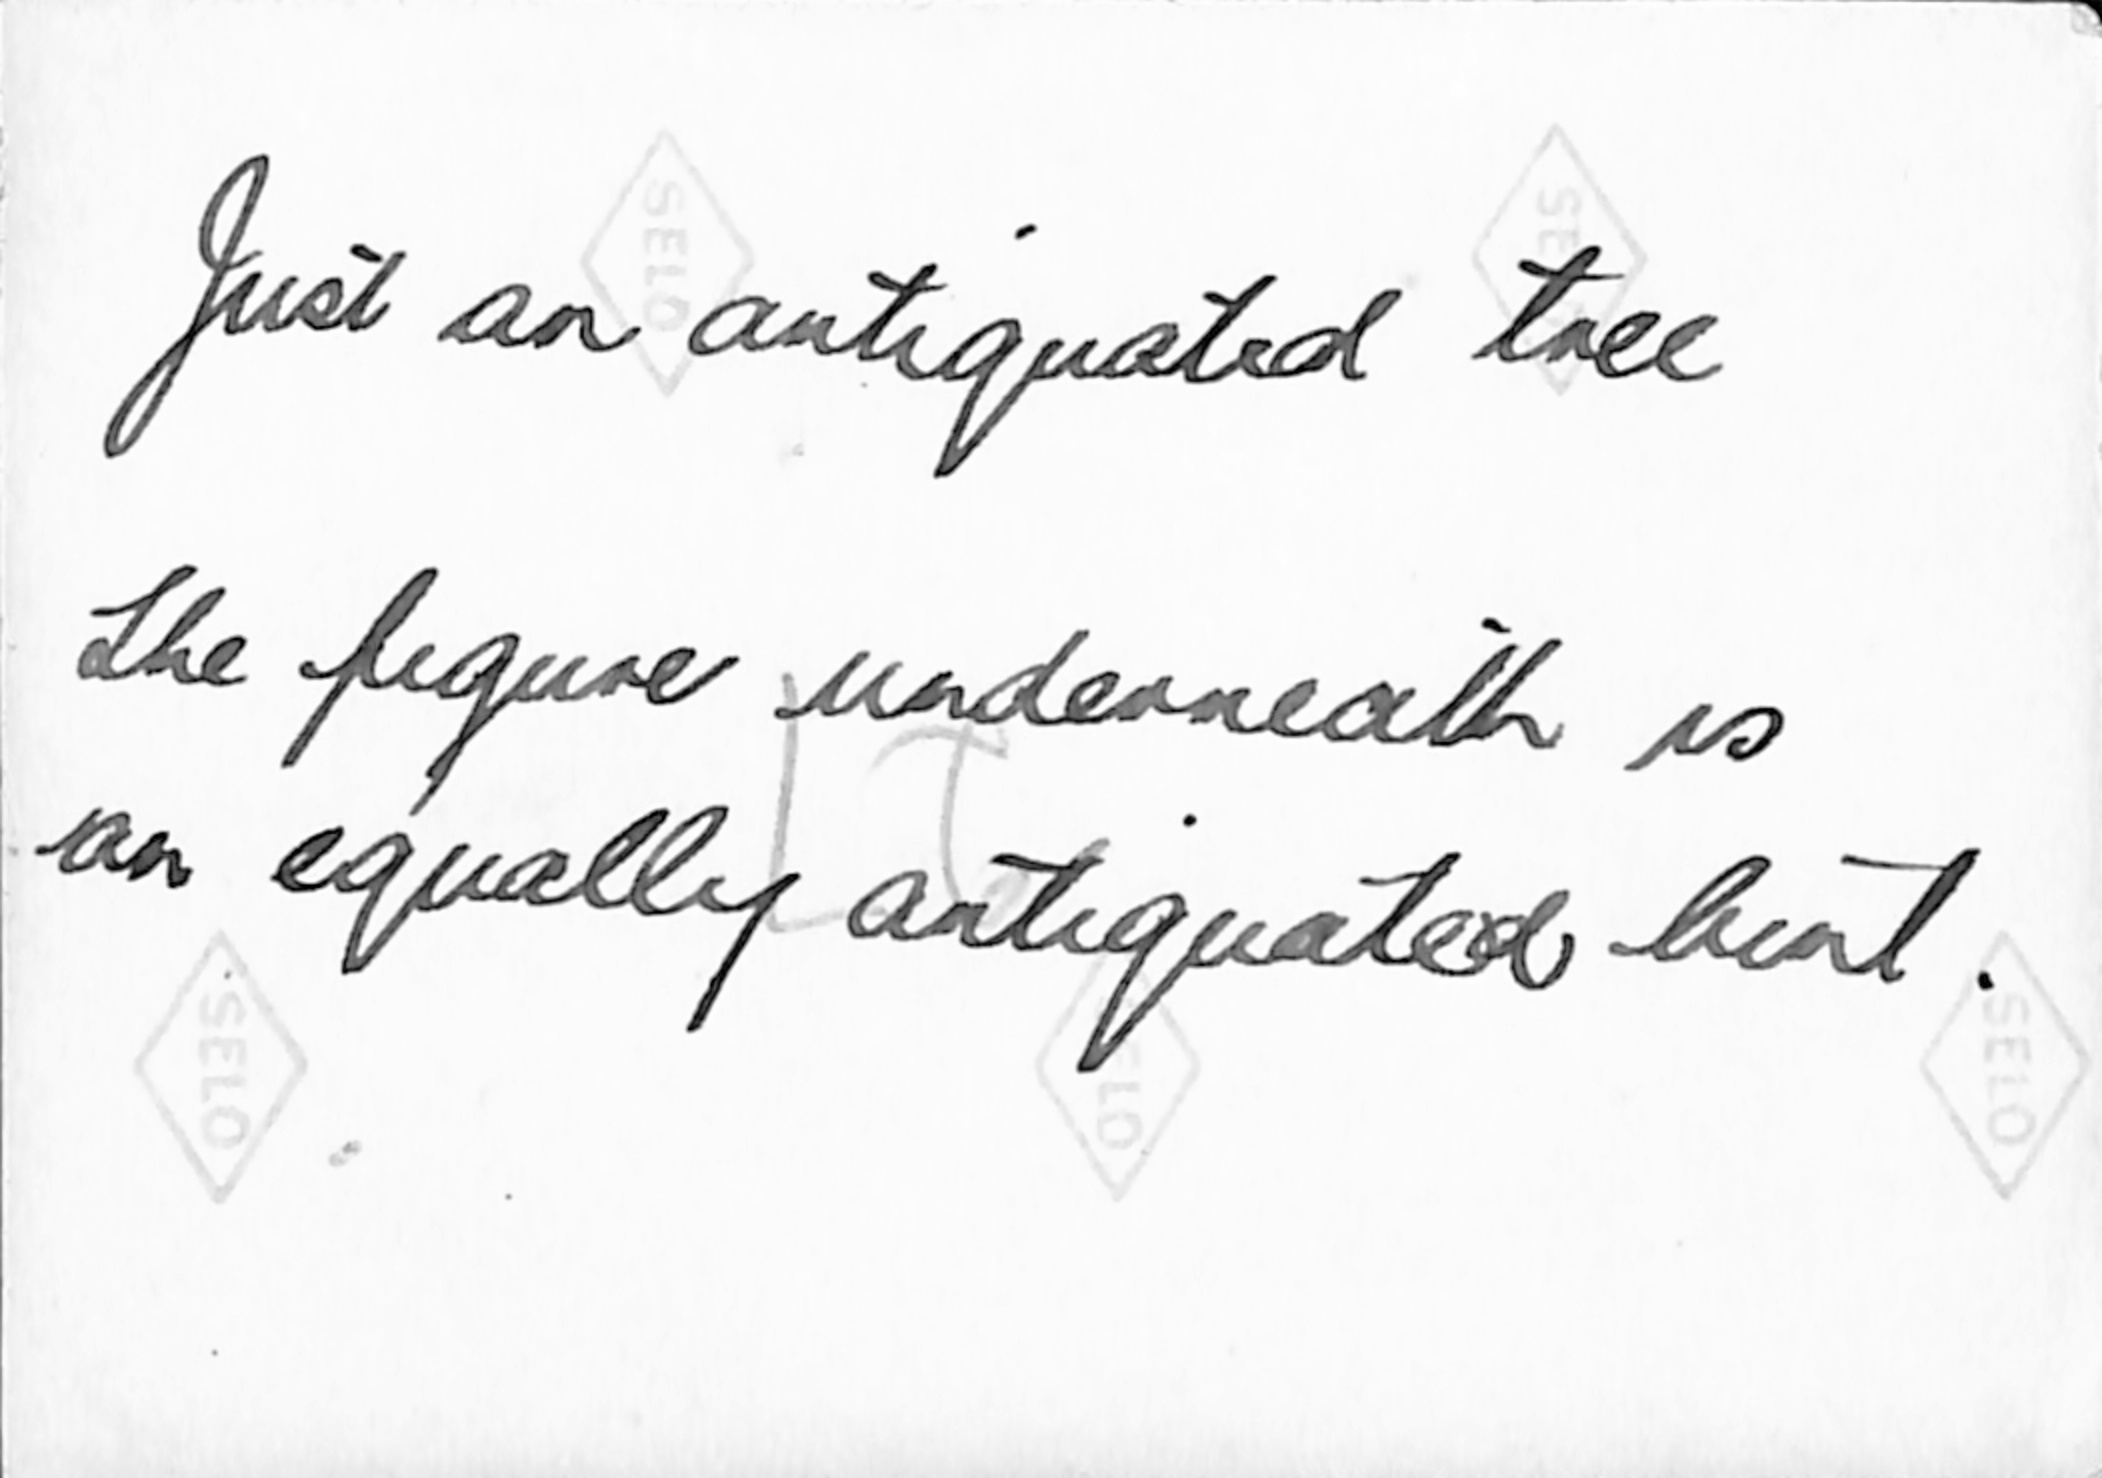 Just an antiquated tree
the figure underneath is
an equally antiquated
SELO
SELO
SELO
SELO
SELO